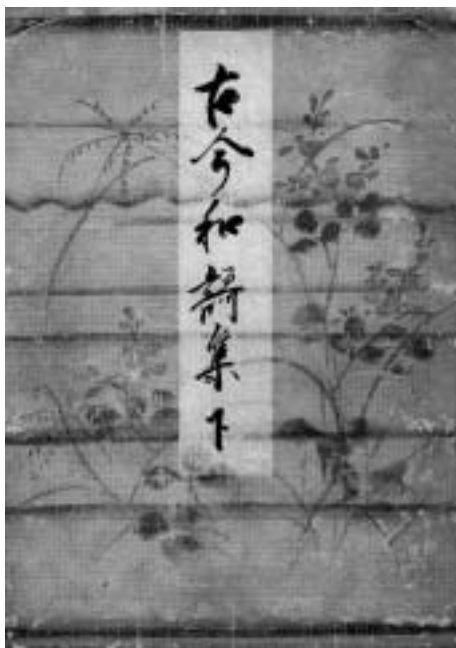 古今和謌集下